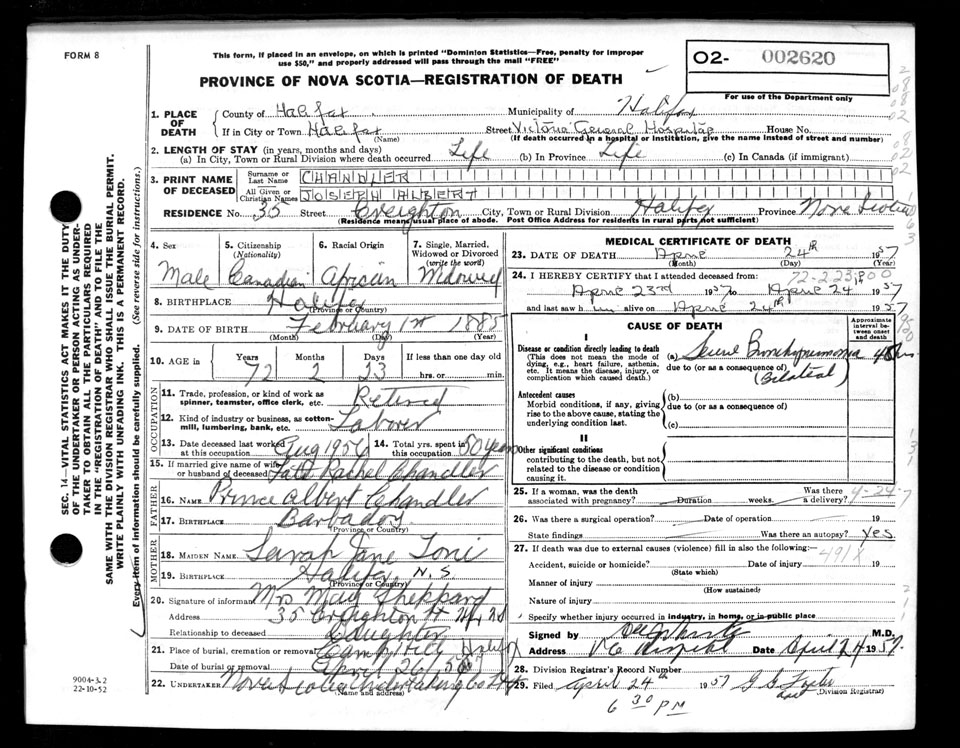 FORM 8
This form, if placed in an envelope, on which is printed "Dominion Statistics—Free, penalty for improper
use $50," and properly addressed will pass through the mail "FREE"
O2- 002620
PROVINCE OF NOVA SCOTIA—REGISTRATION OF DEATH
For use of the Department only
1. PLACE OF DEATH
County of Halifax Municipality of Halifax
If in City or Town Halifax Street Victoria General Hospital House No.
(Name) (If death occurred in a hospital or institution, give the name instead of street and number)
2. LENGTH OF STAY (in years, months and days)
(a) In City, Town or Rural Division where death occurred Life (b) In Province Life (c) In Canada (if immigrant)
3. PRINT NAME OF DECEASED
Surname or Last Name CHANDLER
All Given or Christian Names JOSEPH ALBERT
RESIDENCE No. 35 Street Creighton City, Town or Rural Division Halifax Province Nova Scotia
(Residence means usual place of abode. Post Office Address for residents in rural parts not sufficient)
4. Sex 5. Citizenship (Nationality) 6. Racial Origin 7. Single, Married, Widowed or Divorced (write the word)
Male Canadian African Widowed
8. BIRTHPLACE Halifax
(Province or Country)
9. DATE OF BIRTH February 1st 1885
(Month) (Day) (Year)
10. AGE in Years Months Days If less than one day old
72 2 23 hrs. or min.
OCCUPATION
11. Trade, profession, or kind of work as spinner, teamster, office clerk, etc. Retired
12. Kind of industry or business, as cotton-mill, lumbering, bank, etc. Laborer
13. Date deceased last worked at this occupation Aug 1956 14. Total yrs. spent in this occupation 50 years
15. If married give name of wife or husband of deceased Late Rachel Chandler
FATHER
16. NAME Prince Albert Chandler
17. BIRTHPLACE Barbados
(Province or Country)
MOTHER
18. MAIDEN NAME Sarah Jane
19. BIRTHPLACE Halifax N.S
(Province or Country)
20. Signature of informant Mrs May Sheppard
Address 35 Creighton St
Relationship to deceased Daughter
21. Place of burial, cremation or removal Camp Hill Halifax
Date of burial or removal April 26
22. UNDERTAKER Nova Scotia Undertaking Co
(Name and address)
MEDICAL CERTIFICATE OF DEATH
23. DATE OF DEATH April 24th 1957
(Month) (Day) (Year)
24. I HEREBY CERTIFY that I attended deceased from:
April 23rd 1957 to April 24 1957
and last saw h alive on April 24th 1957
CAUSE OF DEATH
Approximate interval between onset and death
I
Disease or condition directly leading to death
(This does not mean the mode of dying, e.g., heart failure, asthenia, etc. It means the disease, injury, or complication which caused death.)
(a) Bronchopneumonia
due to (or as a consequence of) (Bilateral)
Antecedent causes
Morbid conditions, if any, giving rise to the above cause, stating the underlying condition last.
(b)
due to (or as a consequence of)
(c)
II
Other significant conditions
contributing to the death, but not related to the disease or condition causing it.
25. If a woman, was the death associated with pregnancy? Duration weeks. Was there a delivery? 4-24-7
26. Was there a surgical operation? Date of operation 19
State findings Was there an autopsy? Yes
27. If death was due to external causes (violence) fill in also the following:-
491X
Accident, suicide or homicide? Date of injury 19
(State which)
Manner of injury
(How sustained)
Nature of injury
Specify whether injury occurred in industry, in home, or in public place
Signed by M.D.
Address V G Hospital Date April 24 1957
28. Division Registrar's Record Number
29. Filed April 24th 1957
(Division Registrar)
6 30 PM
SEC. 14—VITAL STATISTICS ACT MAKES IT THE DUTY
OF THE UNDERTAKER OR PERSON ACTING AS UNDERTAKER TO OBTAIN ALL THE PARTICULARS REQUIRED
IN THE "REGISTRATION OF DEATH" AND TO FILE THE
SAME WITH THE DIVISION REGISTRAR WHO SHALL ISSUE THE BURIAL PERMIT.
WRITE PLAINLY WITH UNFADING INK. THIS IS A PERMANENT RECORD.
Every item of information should be carefully supplied. (See reverse side for instructions.)
9004-3.2
22-10-52